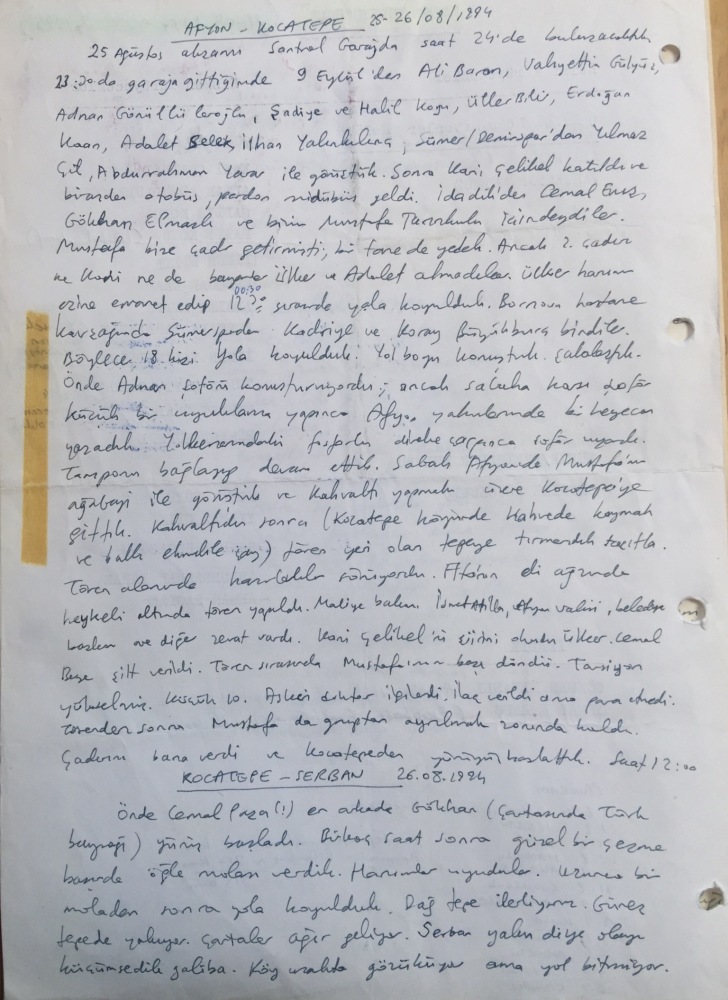 AFYON - KOCATEPE 25-26/08/1994
25 Ağustos akşamı Santral Garajda saat 24'de buluşacaktık
23:30 da garaja gittiğimde 9 Eylül'den Ali Baran, Vahyettin
Adnan Gönüllüleroğlu, Şadiye ve Halil Koçu, Ülker Bilir, Erdoğan
Kaan, Adalet Selek, İlhan Yalınkılınç, Sümer/Demirspor'dan Yılmaz
Çil, Abdurrahman Yarar ile görüştük. Sonra Kani Çelikel katıldı ve
birazdan otobüs, pardon midübüs geldi. İdadik'den Cemal
Gökhan Elmaslı ve bizim Mustafa içindeydiler.
Mustafa bize çadır getirmişti, bir tane de yedek. Ancak 2. çadırı
ne Kani ne de bayanlar Ülker ve Adalet almadılar. Ülker hanım
emanet edip 00:30 12:30 sırasında yola koyulduk. Bornova hastane
kavşağında Sümerspordan Kadriye ve Koray bindiler.
Böylece 18 kişi yola koyulduk. Yol boyu konuştuk. Şakalaştık.
Önde Adnan şoförü konuşturuyordu; ancak sabaha karşı şoför
küçük bir uyuklama yapınca Afyon yakınlarında bir heyecan
yaşadık. Yol kenarındaki fosforlu direğe çarpınca şoför uyandı.
Tamponu bağlayıp devam ettik. Sabah Afyonda Mustafa'nın
ağabeyi ile görüştük ve kahvaltı yapmak üzere Kocatepe'ye
gittik. Kahvaltıdan sonra (Kocatepe köyünde kahvede kaymak
ve ballı ekmekle çay) tören yeri olan tepeye tırmandık taşıtla.
Tören alanında hazırlıklar sürüyordu. Ata'nın eli ağzında
heykeli altında tören yapıldı. Maliye bakanı İsmet Attila, Afyon valisi, belediye
başkanı ve diğer zevat vardı. Kani Çelikel'in şiirini okudu Ülker. Cemal
Beye şilt verildi. Tören sırasında Mustafa'nın başı döndü. Tansiyon
yükselmiş. Küçük 10. Askeri doktor ilgilendi. İlaç verildi ama para etmedi.
Törenden sonra Mustafa da gruptan ayrılmak zorunda kaldı.
Çadırını bana verdi ve Kocatepeden yürüyüşü başlattık. Saat 12:00
KOCATEPE - SERBAN 26.08.1994
Önde Cemal Paşa(!) en arkada Gökhan (Çantasında Türk
bayrağı) yürüyüş başladı. Birkaç saat sonra güzel bir çeşme
başında öğle molası verdik. Hanımlar uyudular. Uzunca bir
moladan sonra yola koyulduk. Dağ tepe ilerliyoruz. Güneş
tepede yakıyor. Çantalar ağır geliyor. Serban yakın diye olayı
küçümsedik galiba. Köy uzakta gözüküyor ama yol bitmiyor.